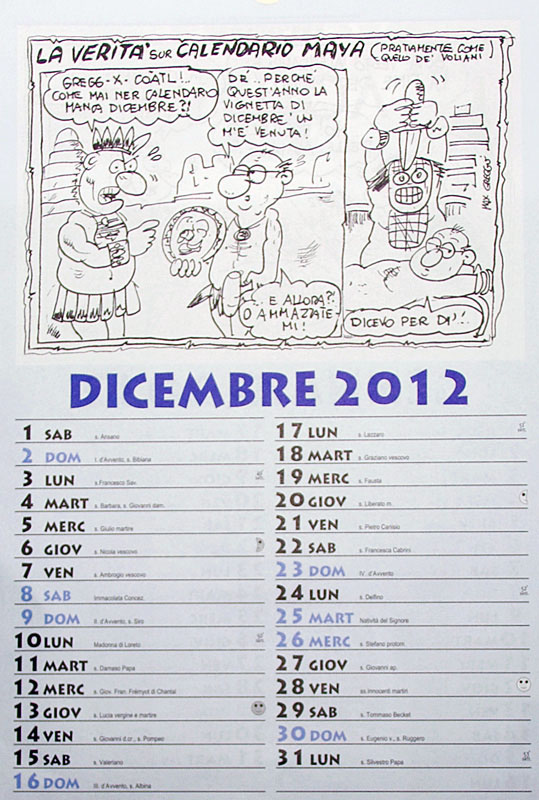 LA VERITA' SUL CALENDARIO MAYA (PRATIAMENTE COME
QUELLO DE' VOLIANI)
GREGG-X-COATL!..
COME MAI NER CALENDARO
MANCA DICEMBRE?!
DE'.. PERCHE'
QUEST'ANNO LA
VIGNETTA DI
DICEMBRE 'UN
M'E' VENUTA!
... E ALLORA?.
O AMMAZZATE-
MI!
DICEVO PER DI'!!
MAX GREGGIO
DICEMBRE 2012
1 SAB s. Ansano
2 DOM I. d'Avvento, s. Bibiana
3 LUN s.Francesco Sav.
4 MART s. Barbara, s. Giovanni dam.
5 MERC s. Giulio martire
6 GIOV s. Nicola vescovo
7 VEN s. Ambrogio vescovo
8 SAB Immacolata Concez.
9 DOM II. d'Avvento, s. Siro
10 LUN Madonna di Loreto
11 MART s. Damaso Papa
12 MERC s. Giov. Fran. Frémyot di Chantal
13 GIOV s. Lucia vergine e martire
14 VEN s. Giovanni d.cr., s. Pompeo
15 SAB s. Valeriano
16 DOM III. d'Avvento, s. Albina
17 LUN s. Lazzaro
18 MART s. Graziano vescovo
19 MERC s. Fausta
20 GIOV s. Liberato m.
21 VEN s. Pietro Canisio
22 SAB s. Francesca Cabrini
23 DOM IV. d'Avvento
24 LUN s. Delfino
25 MART Natività del Signore
26 MERC s. Stefano protom.
27 GIOV s. Giovanni ap.
28 VEN ss.Innocenti martiri
29 SAB s. Tommaso Becket
30 DOM s. Eugenio v., s. Ruggero
31 LUN s. Silvestro Papa